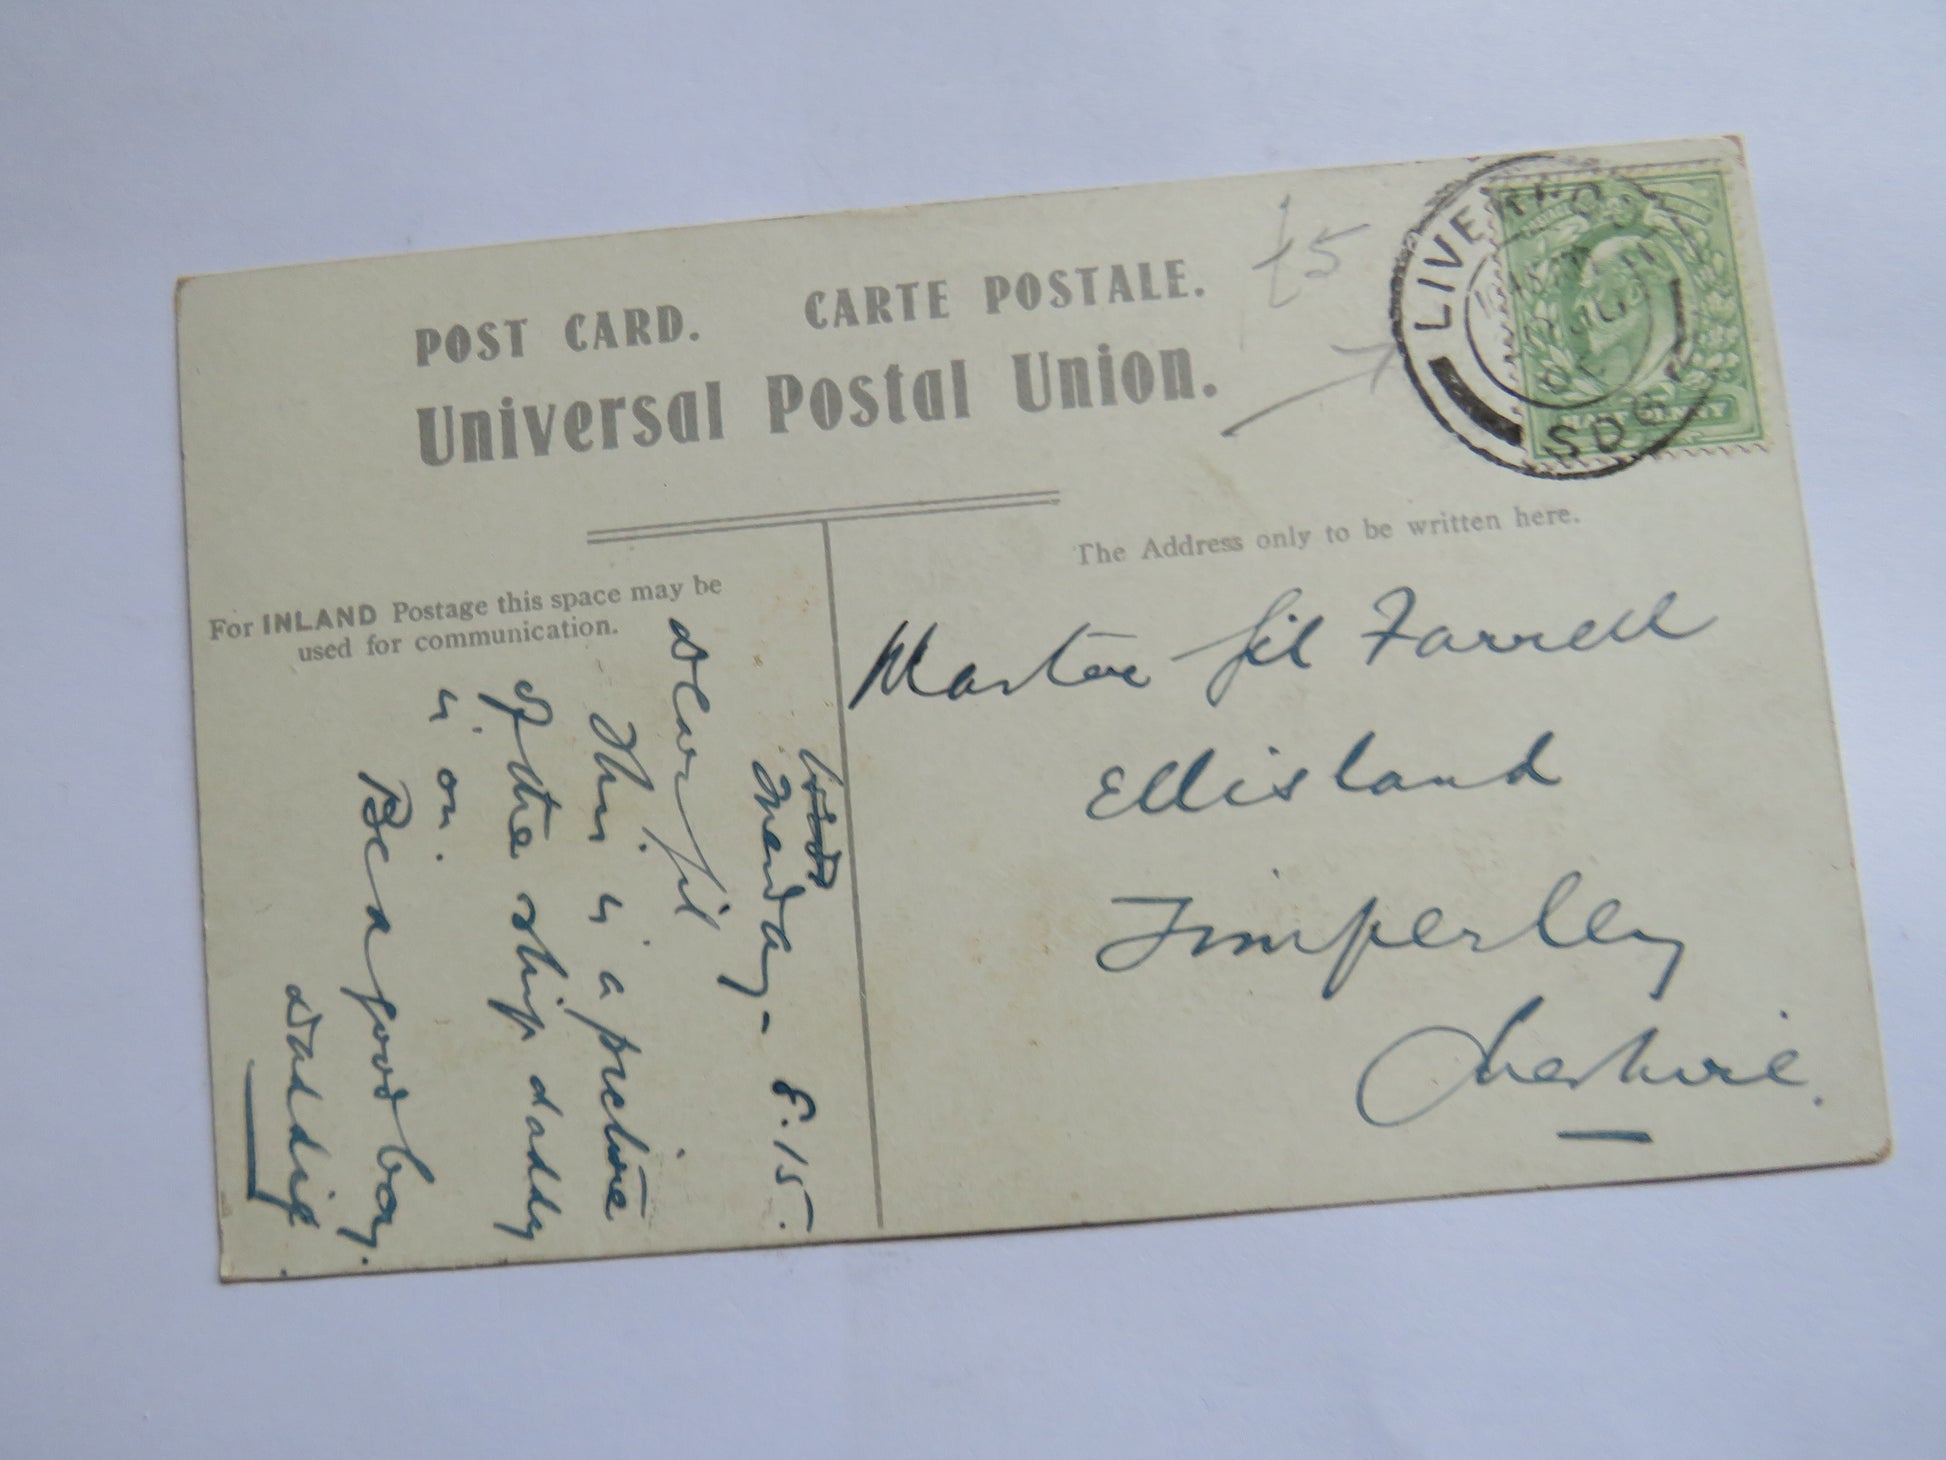 POST CARD. CARTE POSTALE.
Universal Postal Union.
£5
LIVERPOOL
S.D.
HALFPENNY
For INLAND Postage this space may be
used for communication.
The Address only to be written here.
Master Gil Farrell
Ellisland
Timperley
Cheshire.
Monday - 8.15.
Dear Gil
This is a picture
of the ship daddy
is on.
Be a good boy.
Daddie